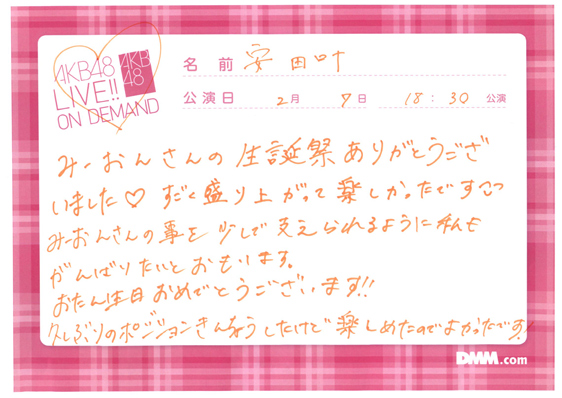 AKB48
LIVE!!
ON DEMAND
AKB
48
名前 安田叶
公演日 2月 9日 18:30 公演
みーおんさんの生誕祭ありがとうござ
いました♡すごく盛り上がって楽しかったですっ
みーおんさんの事を少しで支えられるように私も
がんばりたいとおもります。
おたん生日おめでとうございます!!
久しぶりのポジションきんちょうしたけど楽しめたのでよかったです!
DMM.com